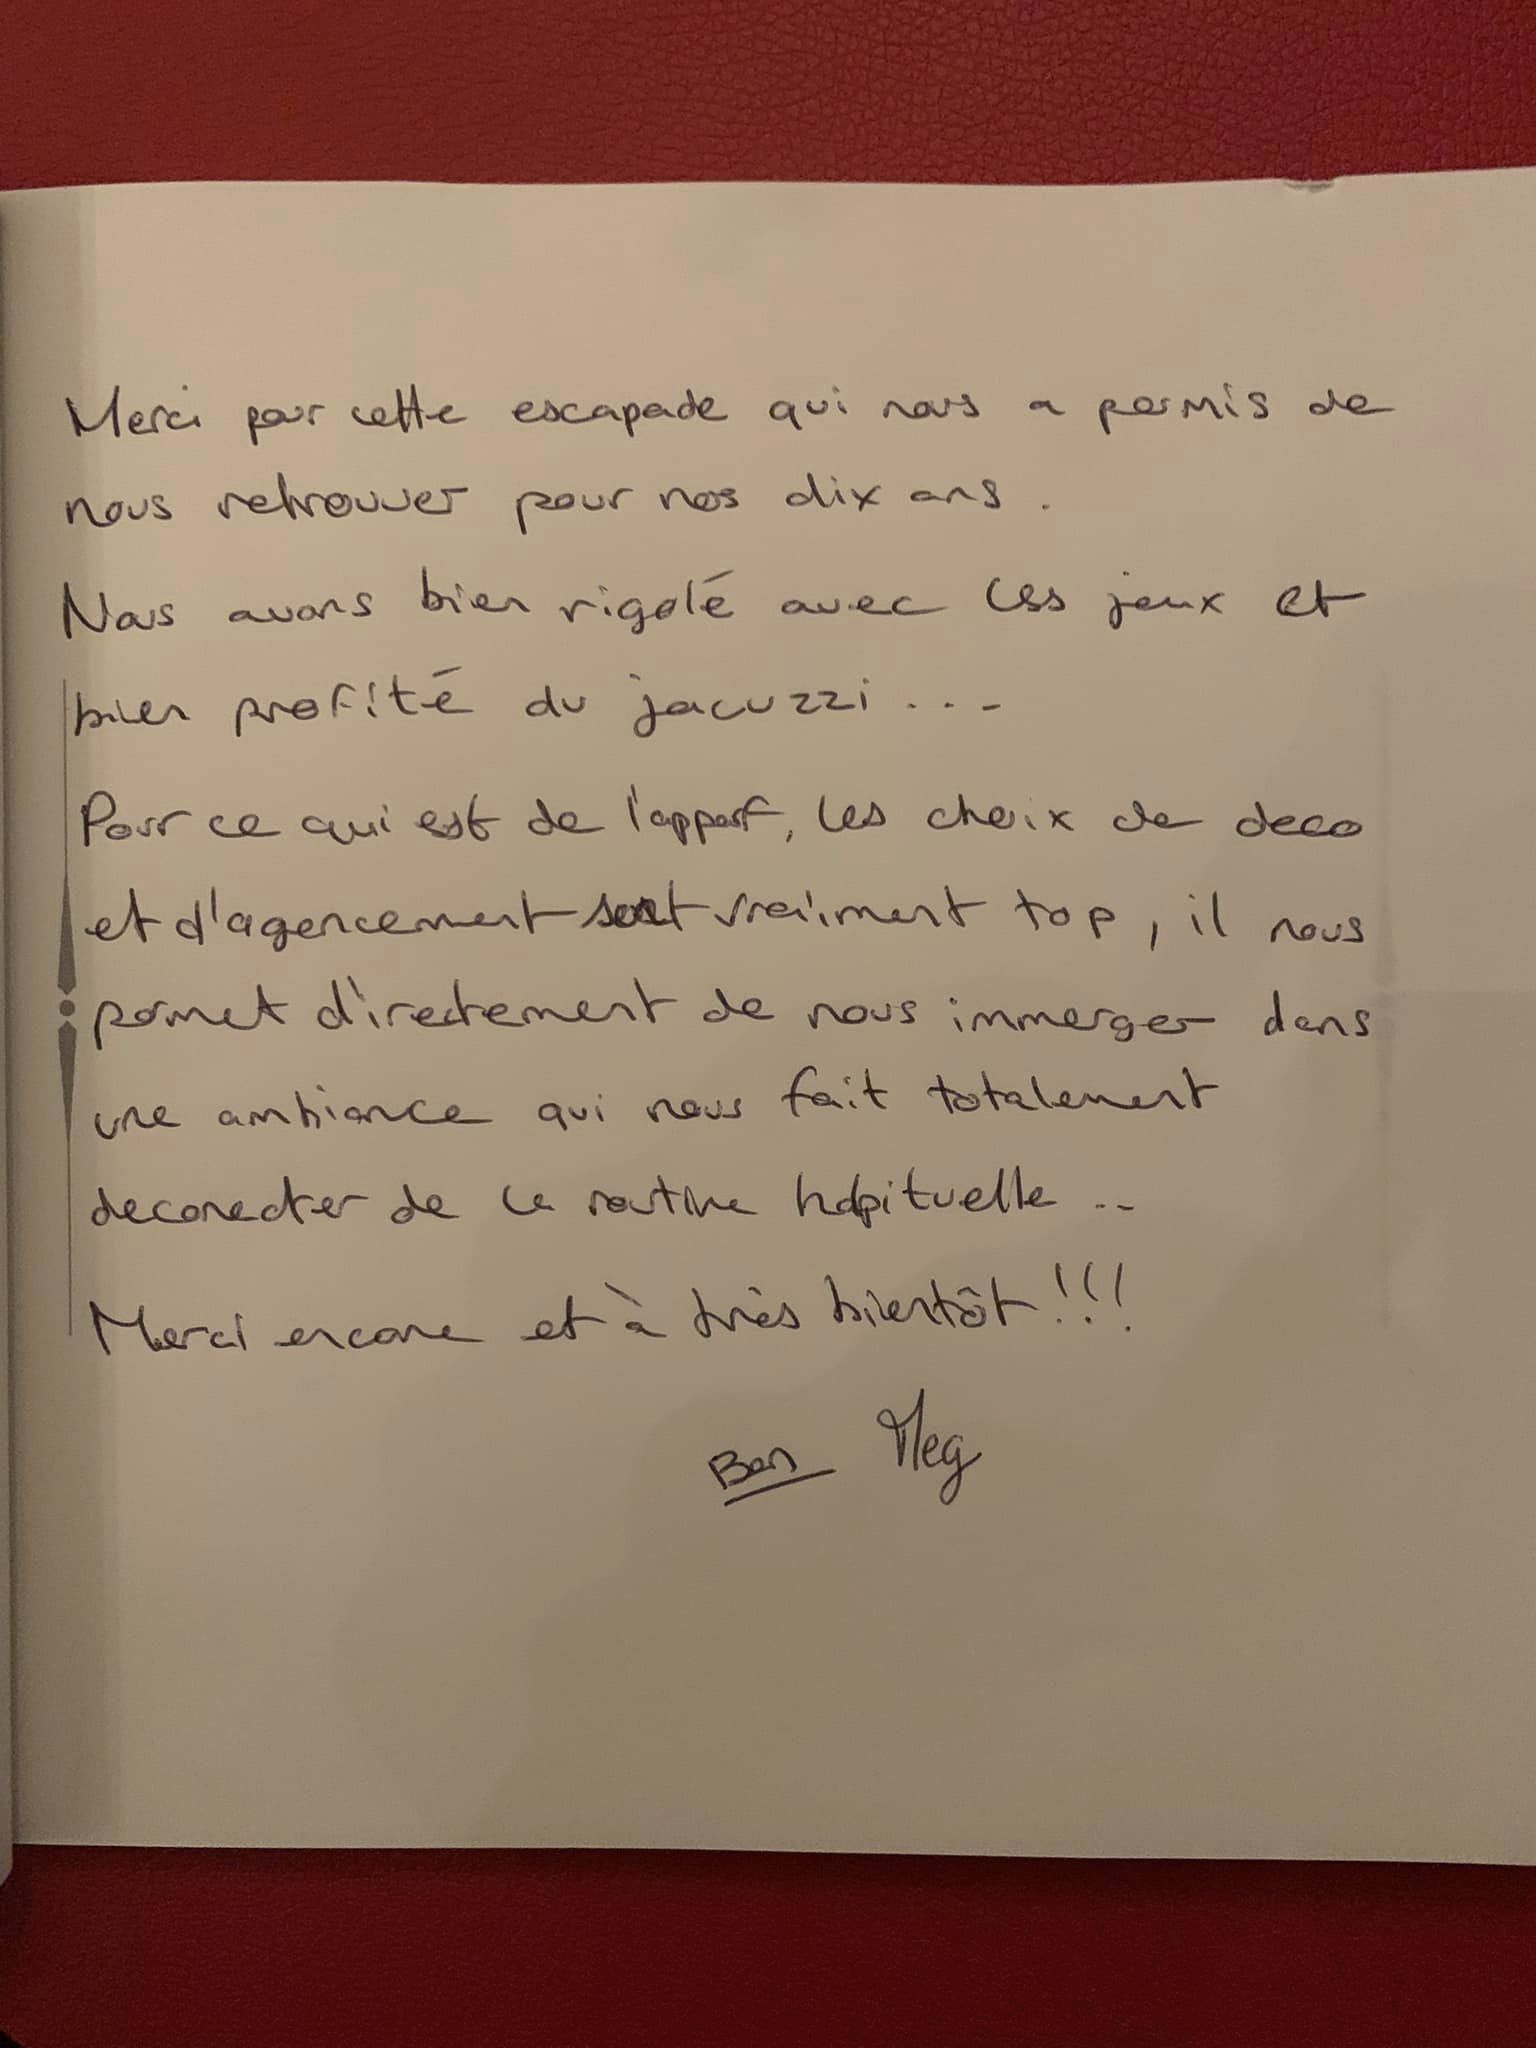 Merci pour cette escapade qui nous a permis de
nous retrouver pour nos dix ans.
Nous avons bien rigolé avec les jeux et
bien profité du jacuzzi...
Pour ce qui est de l'appart, les choix de deco
et d'agencement sont vraiment top, il nous
permet directement de nous immerger dans
une ambiance qui nous fait totalement
deconecter de la routine habituelle..
Merci encore et à très bientôt !!!
Ben Meg